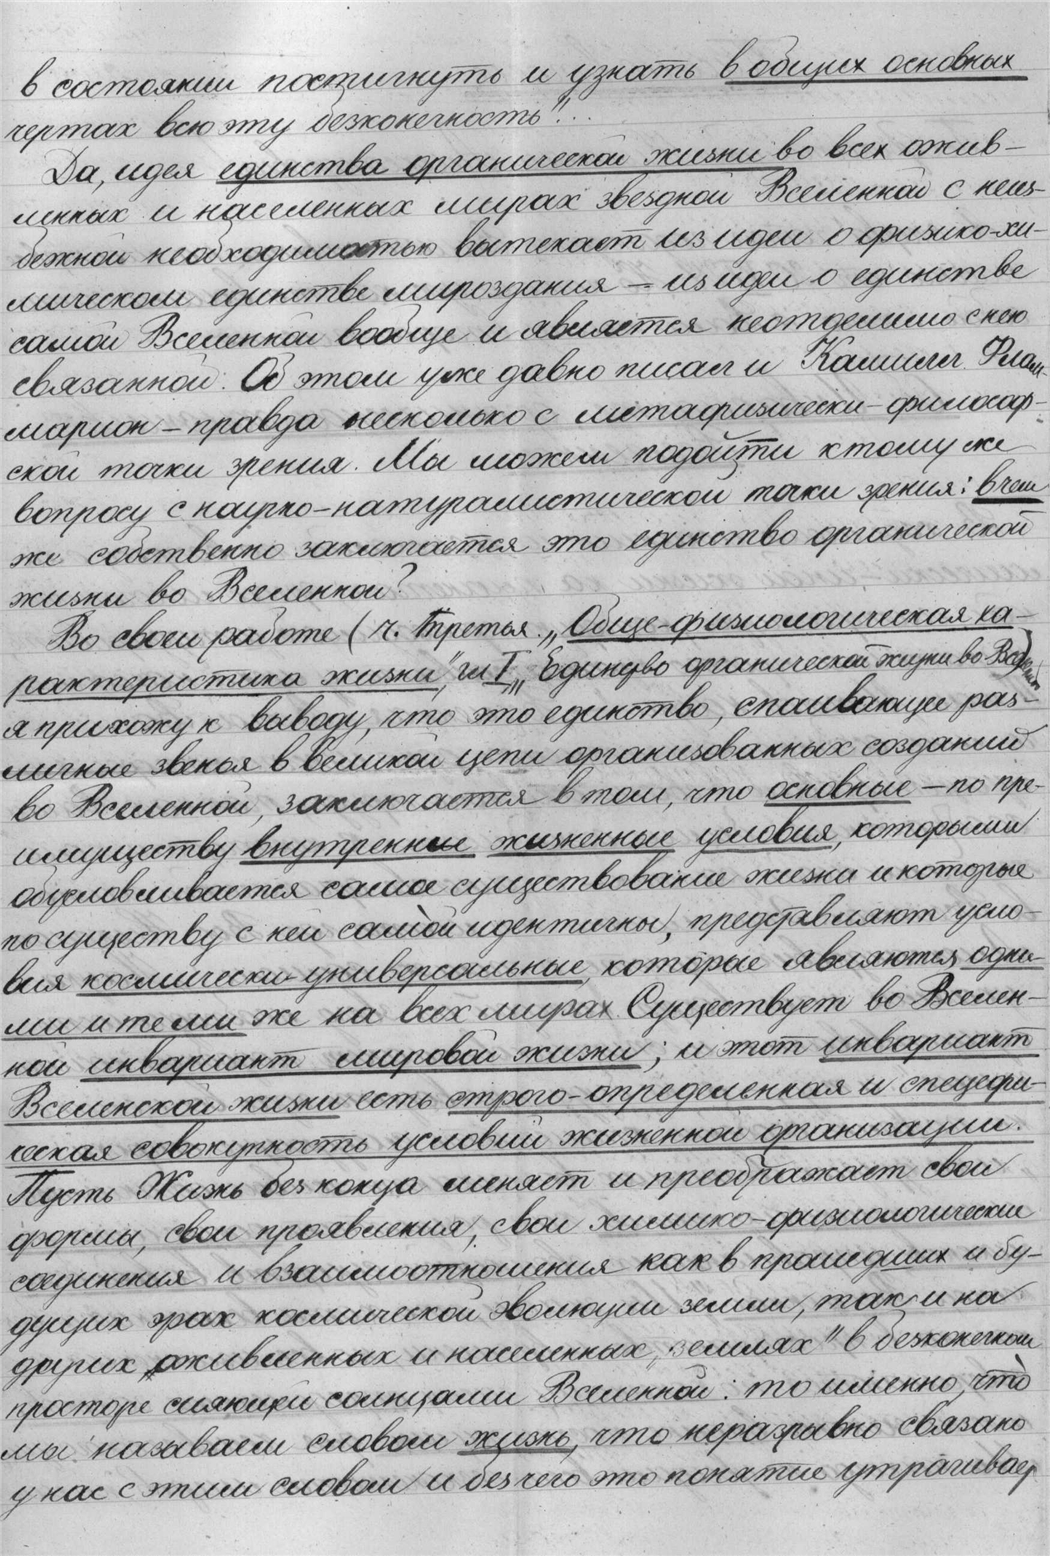 в состоянии постигнуть и узнать в общих основных
чертах всю эту безконечность"...
Да, идея единства органической жизни во всех ожив-
ленных и населенных мирах звездной Вселенной с неиз-
бежной необходимостью вытекает из идеи о физико-хи-
мическом единстве мироздания — из идеи о единстве
самой Вселенной вообще и является неотделимо с нею
связанной. Об этом уже давно писал и Камилл Флам-
марион — правда несколько с метафизически-философ-
ской точки зрения. Мы можем подойти к тому же
вопросу с научно-натуралистической точки зрения: в чем
же собственно заключается это единство органической
жизни во Вселенной?
Во своей работе (ч. третья. „Обще-физиологическая ха-
рактеристика жизни", гл I „Единство органической жизни во Вселенной)
я прихожу к выводу, что это единство, спаивающее раз-
личные звенья в великой цепи организованных созданий
во Вселенной, заключается в том, что основные — по пре-
имуществу внутренние жизненные условия, которыми
обусловливается самое существование жизни и которые
по существу с ней самой идентичны, представляют усло-
вия космически-универсальные, которые являются одни-
ми и теми же на всех мирах. Существует во Вселен-
ной инвариант мировой жизни; и этот инвариант
Вселенской жизни есть строго-определенная и специфи-
ческая совокупность условий жизненной организации.
Пусть Жизнь без конца меняет и преображает свои
формы, свои проявления, свои химико-физиологические
соединения и взаимоотношения как в прошедших и бу-
дущих эрах космической эволюции земли, так и на
других „оживленных и населенных, землях" в безконечном
просторе сияющей солнцами Вселенной: то именно, что
мы называем словом жизнь, что неразрывно связано
у нас с этим словом и без чего это понятие утрачивает